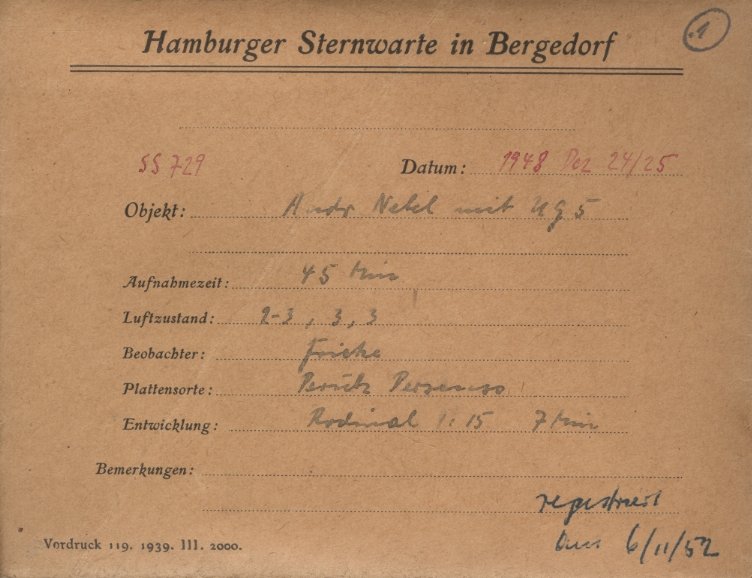 1
Hamburger Sternwarte in Bergedorf
SS 729 Datum: 1948 Dez 24/25
Objekt: Andr Nebel mit UG 5
Aufnahmezeit: 45 Min
Luftzustand: 2-3, 3, 3
Beobachter: Fricke
Plattensorte: Perutz Persenso
Entwicklung: Rodinal 1:15 7 Min
Bemerkungen:
registriert
6/11/52
Vordruck 119. 1939. III. 2000.